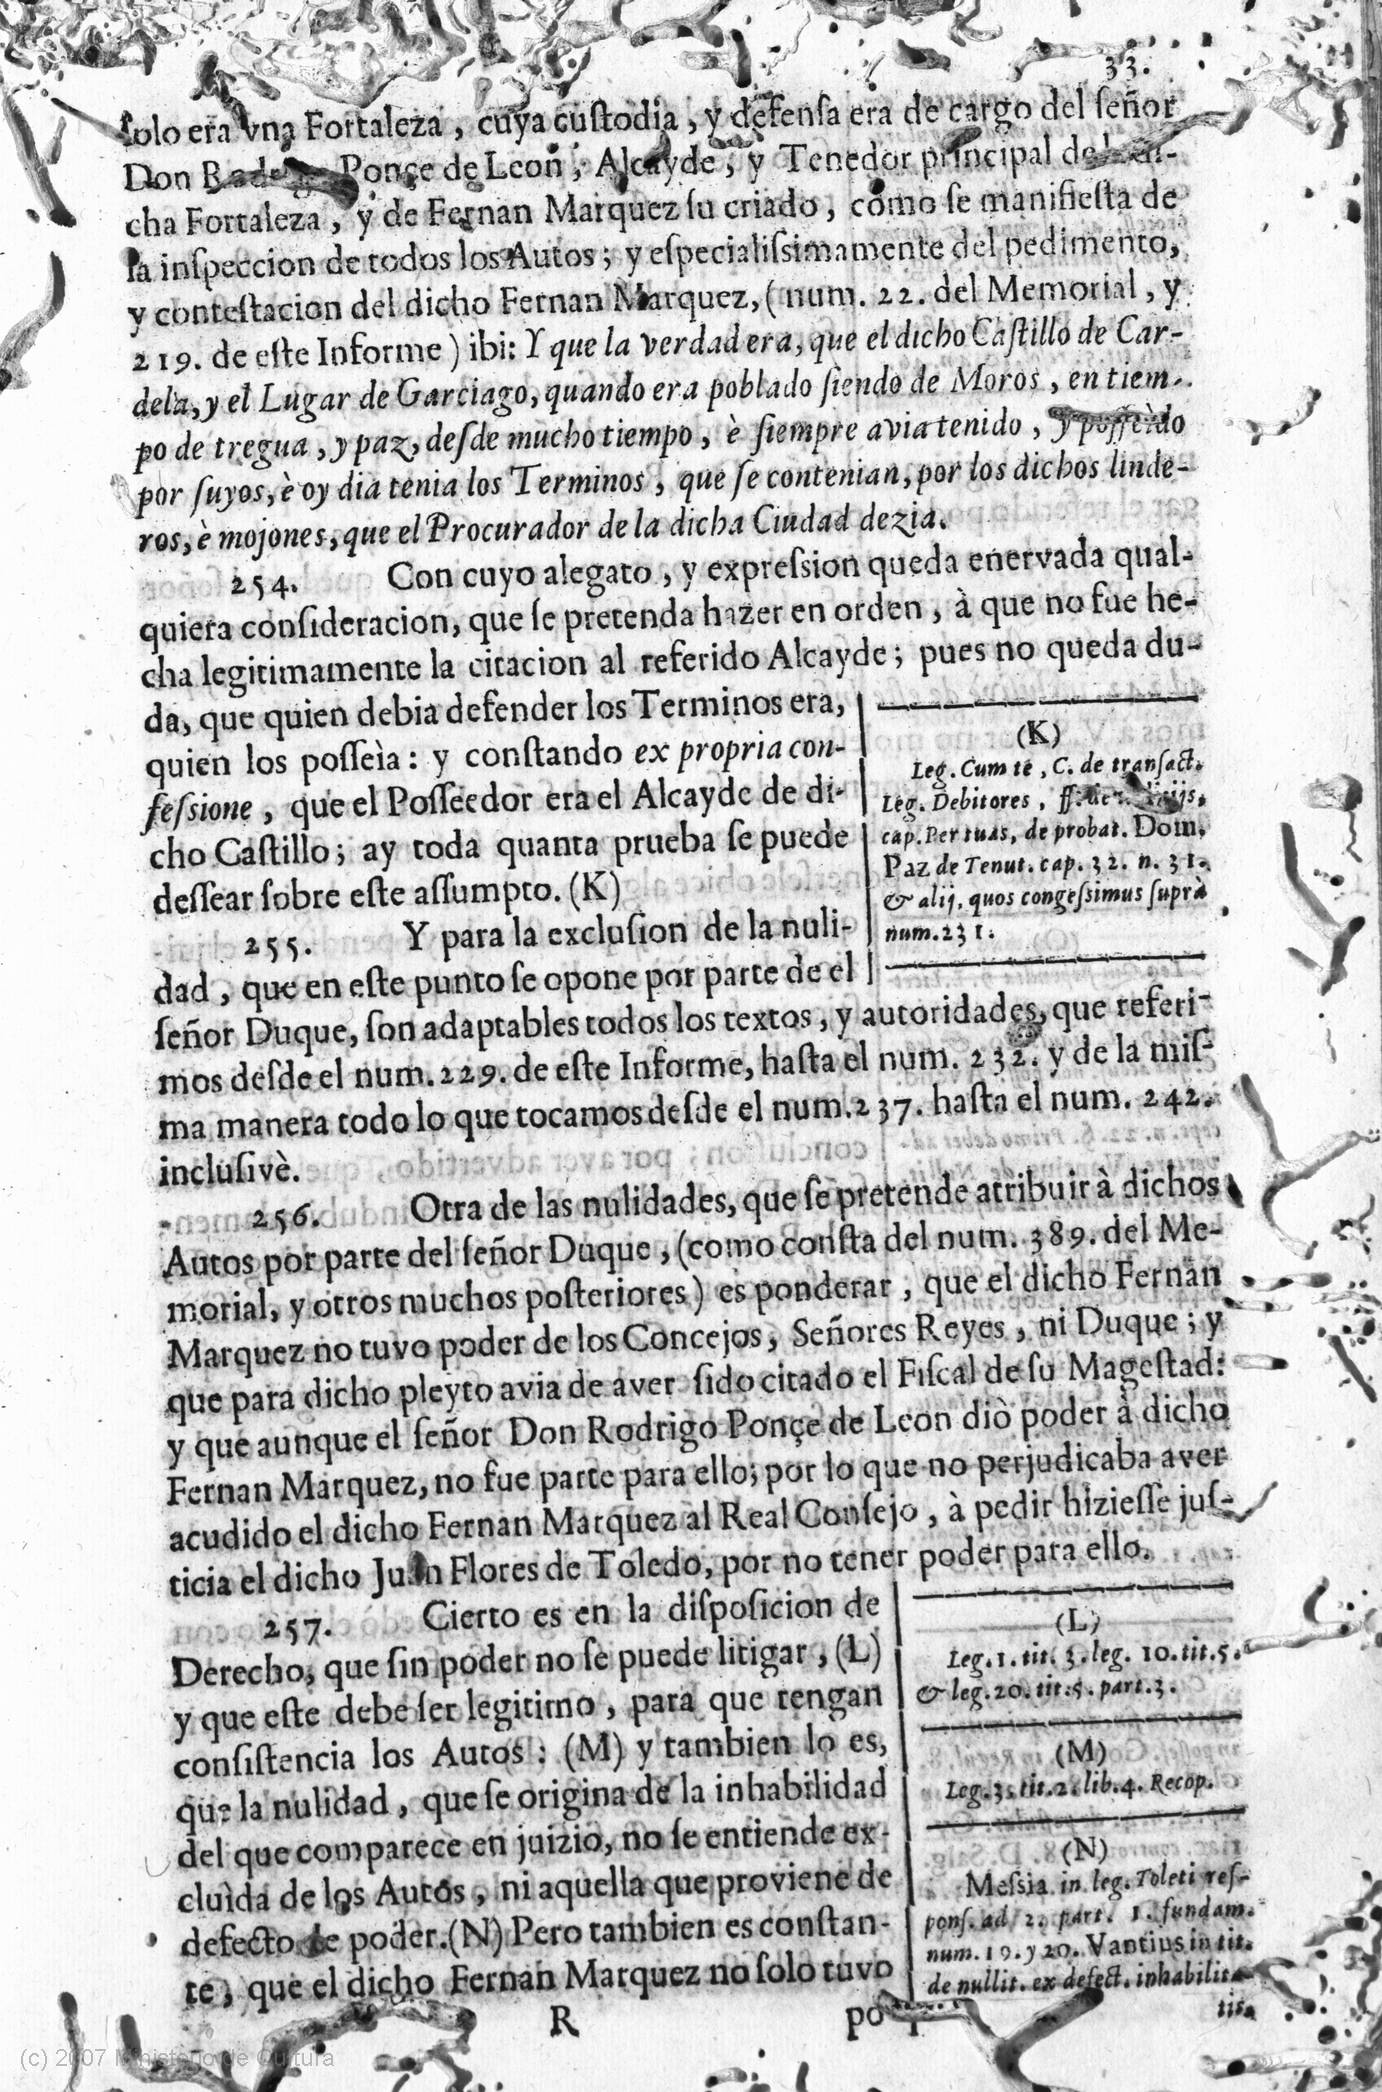 33.
ſolo era vna Fortaleza, cuya cuſtodia, y defenſa era de cargo del ſeñor
Don Ponçe de Leon, Alcayde, y Tenedor principal de
cha Fortaleza, y de Fernan Marquez ſu criado, como ſe manifieſta de
la inſpeccion de todos los Autos; y eſpecialiſsimamente del pedimento,
y conteſtacion del dicho Fernan Marquez, (num. 22. del Memorial, y
219. de eſte Informe) ibi: Y que la verdad era, que el dicho Caſtillo de Car-
dela, y el Lugar de Garciago, quando era poblado ſiendo de Moros, en tiem-
po de tregua, y paz, deſde mucho tiempo, è ſiempre avia tenido, y poſſeìdo
por ſuyos, è oy dia tenia los Terminos, que ſe contenian, por los dichos linde-
ros, è mojones, que el Procurador de la dicha Ciudad dezia.
254. Con cuyo alegato, y expreſsion queda enervada qual-
quiera conſideracion, que ſe pretenda hazer en orden, à que no fue he-
cha legitimamente la citacion al referido Alcayde; pues no queda du-
da, que quien debia defender los Terminos era,
quien los poſſeìa: y conſtando ex propria con-
feſsione, que el Poſſeedor era el Alcayde de di-
cho Caſtillo; ay toda quanta prueba ſe puede
deſſear ſobre eſte aſſumpto. (K)
(K)
Leg. Cum te, C. de tranſact.
Leg. Debitores, ff. de
cap. Per tuas, de probat. Dom.
Paz de Tenut. cap. 32. n. 31.
& alij, quos congeſsimus ſuprà
num. 231.
255. Y para la excluſion de la nuli-
dad, que en eſte punto ſe opone por parte de el
ſeñor Duque, ſon adaptables todos los textos, y autoridades, que referi-
mos deſde el num. 229. de eſte Informe, haſta el num. 232. y de la miſ-
ma manera todo lo que tocamos deſde el num. 237. haſta el num. 242.
incluſivè.
256. Otra de las nulidades, que ſe pretende atribuir à dichos
Autos por parte del ſeñor Duque, (como conſta del num. 389. del Me-
morial, y otros muchos poſteriores) es ponderar, que el dicho Fernan
Marquez no tuvo poder de los Concejos, Señores Reyes, ni Duque; y
que para dicho pleyto avia de aver ſido citado el Fiſcal de ſu Mageſtad:
y que aunque el ſeñor Don Rodrigo Ponçe de Leon diò poder à dicho
Fernan Marquez, no fue parte para ello; por lo que no perjudicaba aver
acudido el dicho Fernan Marquez al Real Conſejo, à pedir hizieſſe juſ-
ticia el dicho Juan Flores de Toledo, por no tener poder para ello.
257. Cierto es en la diſpoſicion de
Derecho, que ſin poder no ſe puede litigar, (L)
y que eſte debe ſer legitimo, para que tengan
conſiſtencia los Autos: (M) y tambien lo es,
que la nulidad, que ſe origina de la inhabilidad
del que comparece en juizio, no ſe entiende ex-
cluìda de los Autos, ni aquella que proviene de
defecto de poder. (N) Pero tambien es conſtan-
te, que el dicho Fernan Marquez no ſolo tuvo
(L)
Leg. 1. tit. 3. leg. 10. tit. 5.
& leg. 20. tit. 5. part. 3.
(M)
Leg. 3. tit. 2. lib. 4. Recop.
(N)
Meſsia in leg. Toleti reſ-
ponſ. ad 2. part. 1. fundam.
num. 19. y 20. Vantius in tit.
de nullit. ex defect. inhabilita-
tis.
R
(c) 2007 Ministerio de Cultura